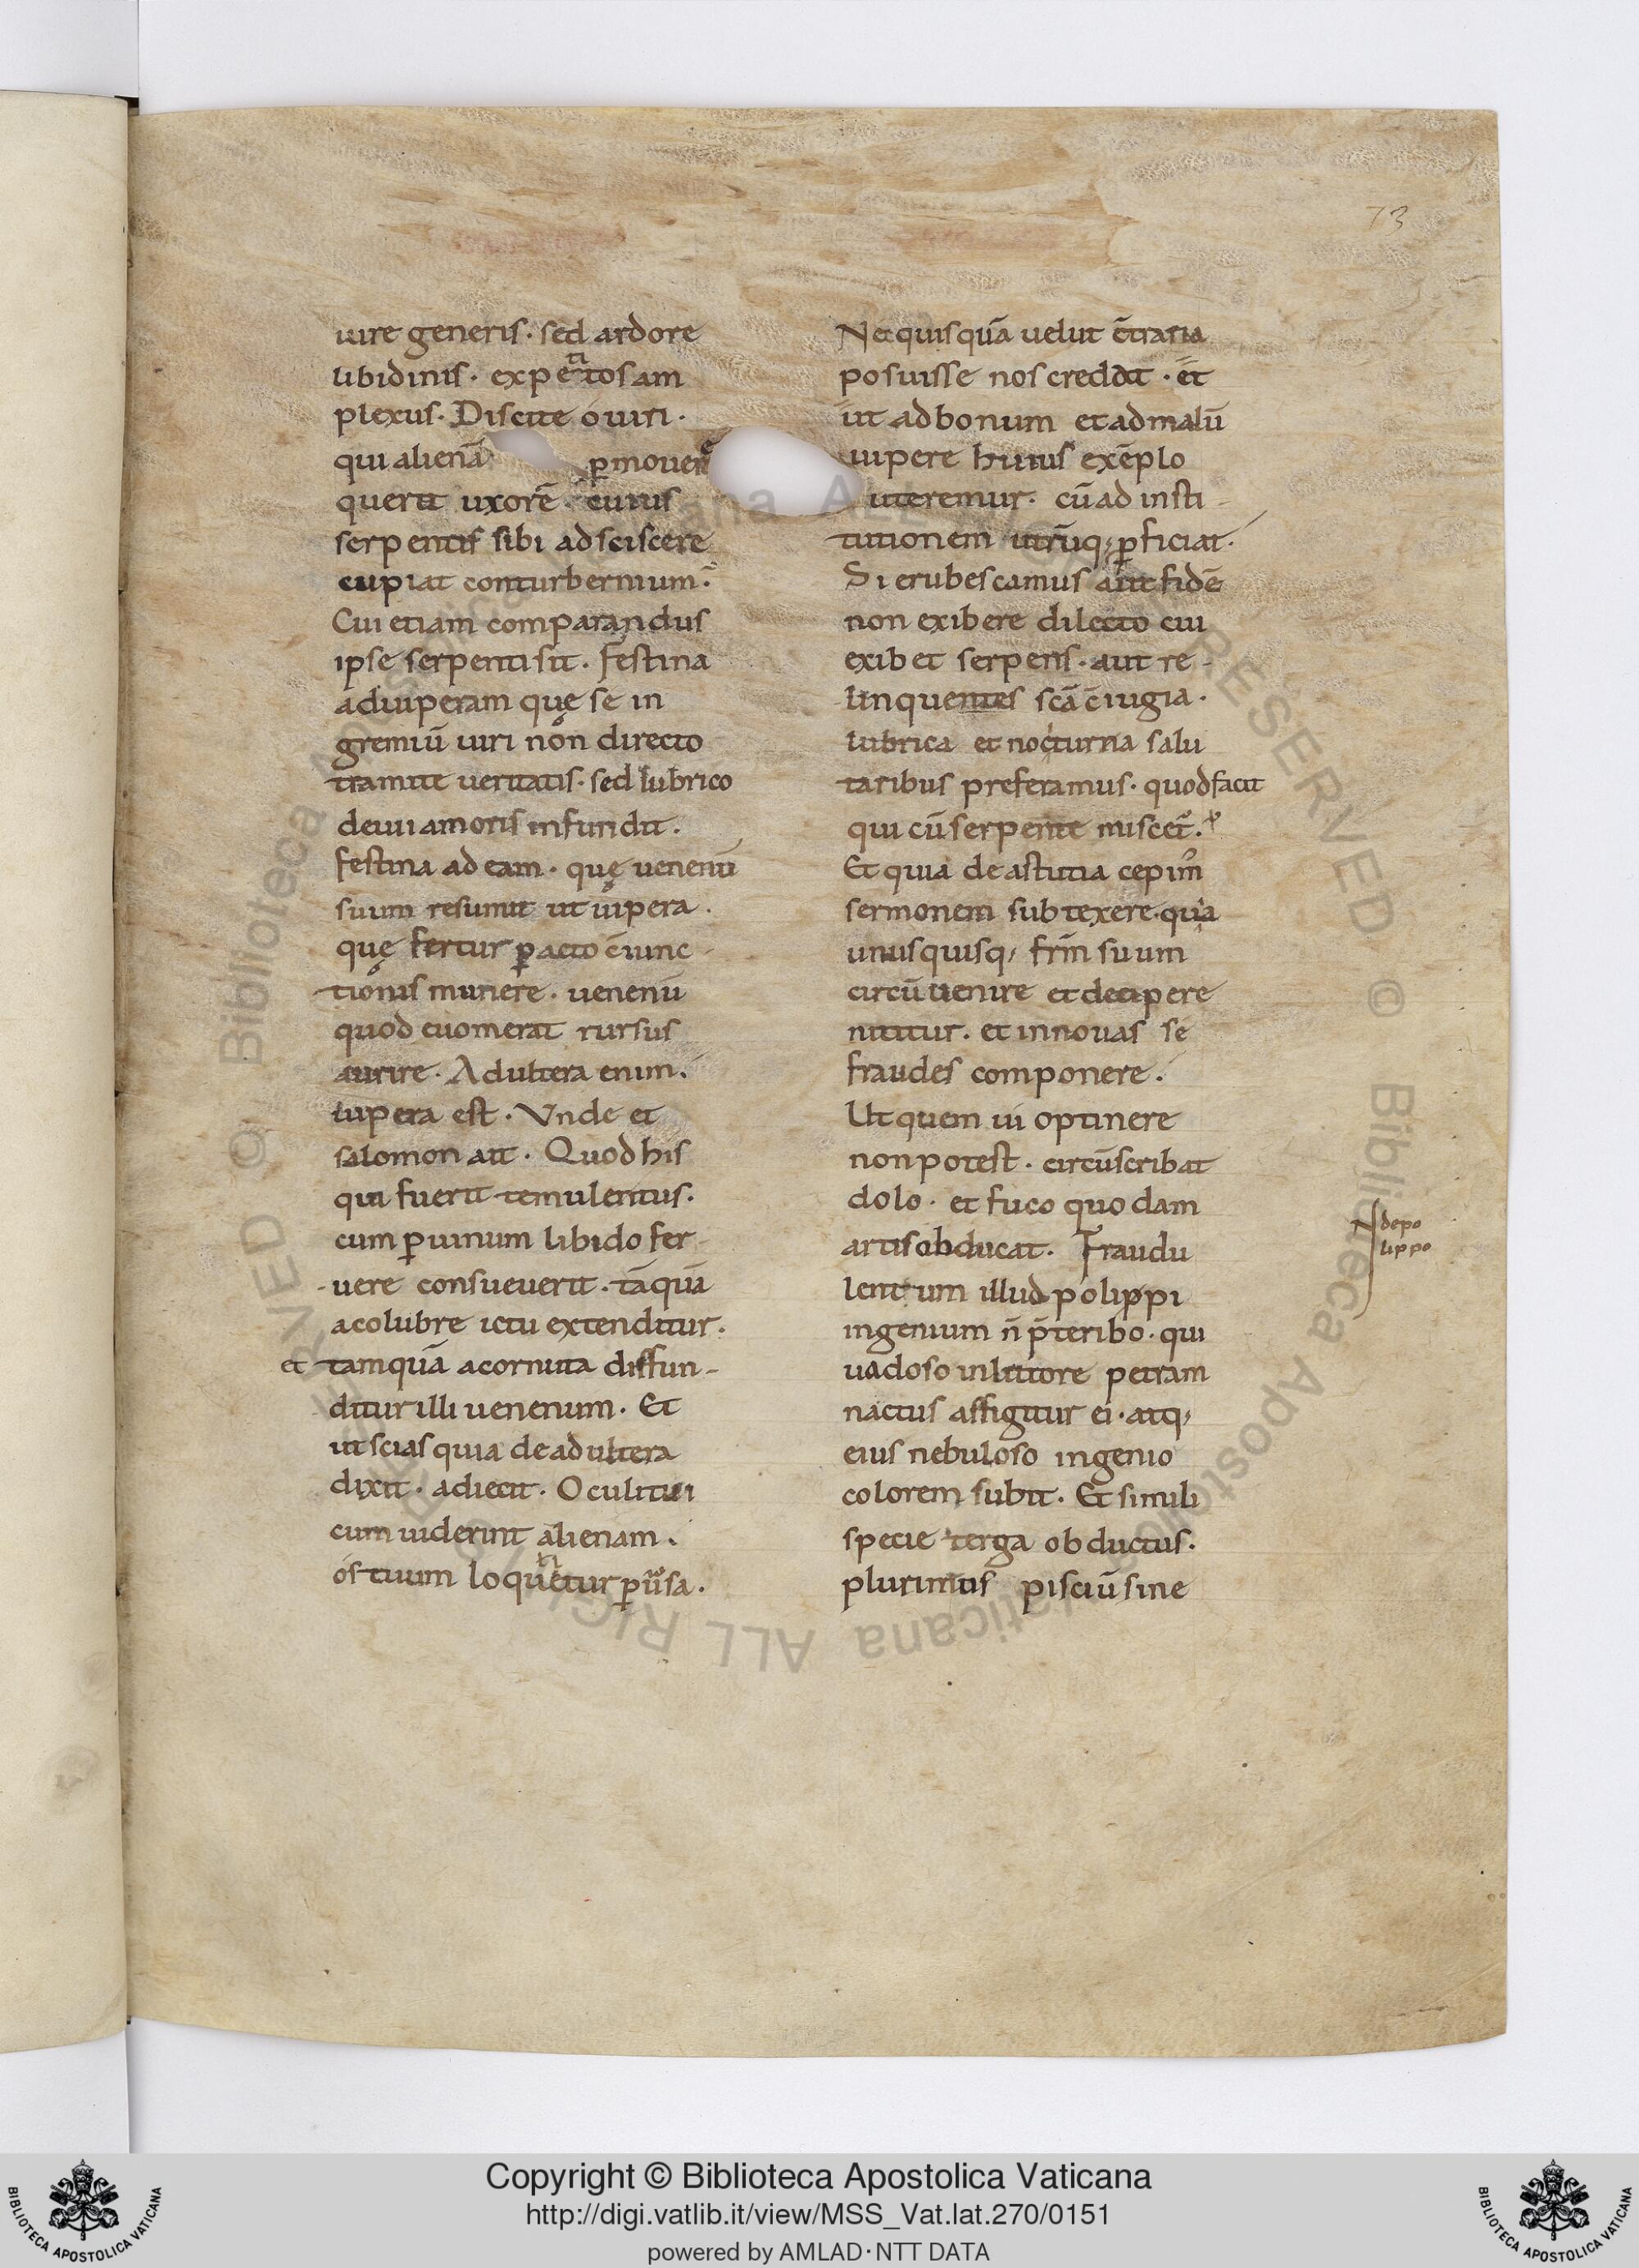 73
uire generis · sed ardore
libidinis · expetitos am
plexus · Discite o uiri ·
qui alienā p̲mouere
querit uxorē · cuius
serpentis sibi adsciscere
cupiat conturbernium ·
Cui etiam comparandus
ipse serpenti sit · Festina
aduiperam quę se in
gremiū uiri non directo
tramite ueritatis · sed lubrico
deuii amoris infundit ·
festina ad eam · quę uenenū
suum resumit ut uipera ·
quę fertur ꝑacto c̄iunc
tionis munere · uenenū
quod euomerat rursus
aurire · Adultera enim ·
uipera est · Vnde et
salomon ait · Quod his
qui fuerit temulentus ·
cum ꝑ uinum libido fer
uere consueuerit · tāquā
acolubre ictu extenditur ·
et tamquā acornuta diffun-
ditur illi uenenum · Et
ut scias quia de adultera
dixit · adiecit · Oculi tui
cum uiderint alienam ·
os tuum loquetur ꝑuͦsa ·
Nec quisquā uelut c̄traria
posuisse nos credat · et
ut ad bonum et ad malū
uipere huius exēplo
uteremur · cū ad insti-
tutionem utrūq; ꝓficiat ·
Si erubescamus aut fidē
non exibere dilecto cui
exibet serpens · aut re-
linquentes scā c̄iugia ·
lubrica et nocturna salu
taribus preferamus · quod facit
qui cū serpente miscet̄ ·
Et quia de astutia cepim̄
sermonem subtexere · qua
unusquisq; frm̄ suum
circū uenire et decipere
nititur · et in nouas se
fraudes componere ·
Ut quem ui optinere
non potest · circūscribat
dolo · et fuco quodam
artis obducat · Fraudu
lentum illud polippi
ingenium n̄ p̄teribo · qui
uadoso in litore petram
nactus affigitur ei · atq;
eius nebuloso ingenio
colorem subit · Et simili
specie terga obductus ·
plurimus pisciū sine
N depo
lippo
Copyright © Biblioteca Apostolica Vaticana
http://digi.vatlib.it/view/MSS_Vat.lat.270/0151
powered by AMLAD·NTT DATA
BIBLIOTECA APOSTOLICA VATICANA
BIBLIOTECA APOSTOLICA VATICANA
© Biblioteca Apostolica Vaticana ALL RIGHTS RESERVED © Biblioteca Apostolica Vaticana ALL RIGHTS RESERVED